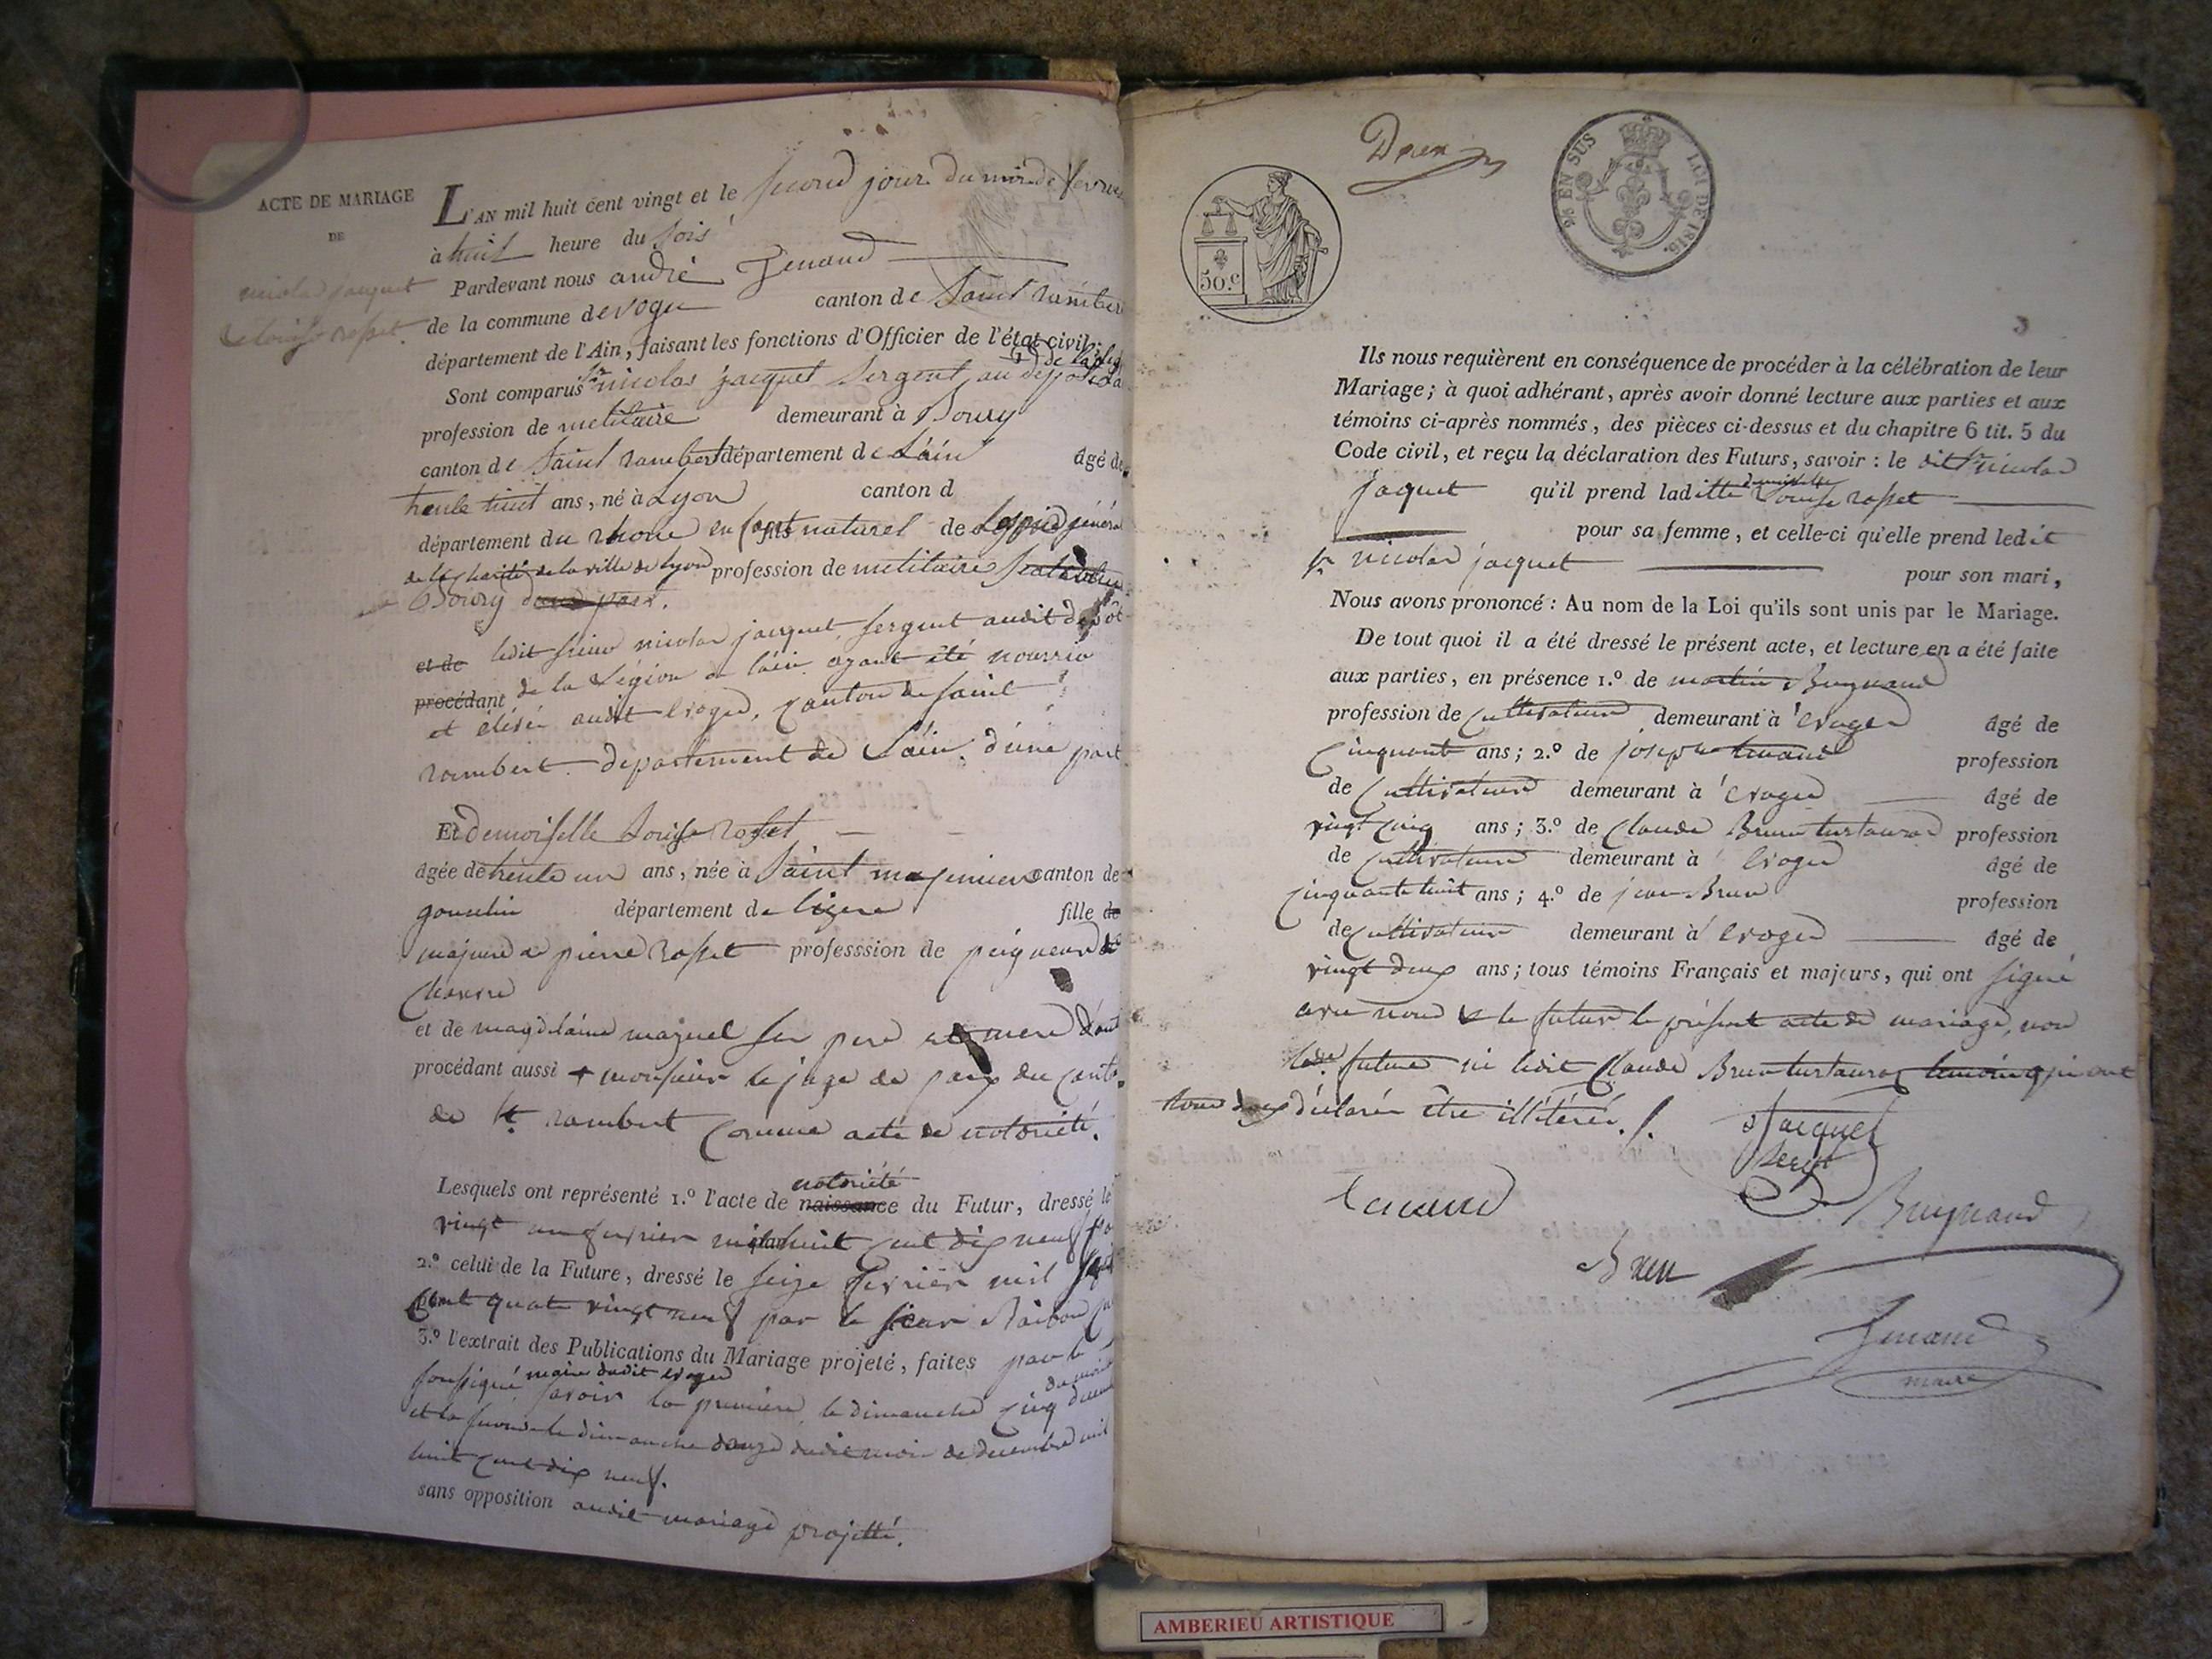 ACTE DE MARIAGE
DE
nicolas jacquet
& louise rosset
L'AN mil huit cent vingt et le second jour du mois de fevrier
à huit heure du soir
Pardevant nous andré Tenand
de la commune d'evoges canton de Saint rambert
département de l'Ain, faisant les fonctions d'Officier de l'état civil;
Sont comparus Sr nicolas jacquet Sergent au depot de la
profession de militaire demeurant à Bourg
canton de Saint rambert département de L'ain âgé de
trente huit ans, né à Lyon canton d
département du rhone enfant naturel de L'hospice général
de la charité de la ville de lyon profession de militaire
Bourg
et de ledit sieur nicolas jacquet, sergent audit depôt
procédant de la Légion de l'ain ayant été nourrie
et élévé audit evoges, canton de saint
rambert département de L'ain, d'une part
Et demoiselle Louise rosset
âgée de trente un ans, née à Saint maximien canton de
goncelin département de lizere fille de
majeure de pierre Rosset professsion de peigneur de
Chanvre
et de magdelaine maquel ses pere et mere d'autre
procédant aussi monsieur le juge de paix du canton
de St rambert comme acte de notoriété.
Lesquels ont représenté 1.° l'acte de naissance notoriété du Futur, dressé le
vingt un fevrier mil huit cent dix neuf
2.° celui de la Future, dressé le seize fevrier mil sept
cent quatre vingt neuf par le sieur Raibon
3.° l'extrait des Publications du Mariage projeté, faites par le
soussigné maire dudit evoges savoir la premiere, le dimanche cinq du mois decembre
et la seconde le dimanche douze dudit mois de decembre mil
huit cent dix neuf.
sans opposition audit mariage projetté.
Deux
50.c
EN SUS LOI DE 1816.
3
Ils nous requièrent en conséquence de procéder à la célébration de leur
Mariage; à quoi adhérant, après avoir donné lecture aux parties et aux
témoins ci-après nommés, des pièces ci-dessus et du chapitre 6 tit. 5 du
Code civil, et reçu la déclaration des Futurs, savoir: le dit Sr nicolas
jaquet qu'il prend ladite demoiselle Louise rosset
pour sa femme, et celle-ci qu'elle prend ledit
Sr nicolas jacquet pour son mari,
Nous avons prononcé: Au nom de la Loi qu'ils sont unis par le Mariage.
De tout quoi il a été dressé le présent acte, et lecture en a été faite
aux parties, en présence 1.° de martin Bugnand
profession de cultivateur demeurant à evoges âgé de
cinquante ans; 2.° de joseph tenand profession
de cultivateur demeurant à evoges âgé de
vingt cinq ans; 3.° de claude Brun turtaurot profession
de cultivateur demeurant à evoges âgé de
cinquante huit ans; 4.° de jean Brun profession
de cultivateur demeurant à evoges âgé de
vingt deux ans; tous témoins Français et majeurs, qui ont signé
avec nous & le futur le présent acte de mariage, non
lade future ni ledit Claude Brun turtaurot temoin qui ont
tous deux déclaré être illitérés.
Jacquet
Sergt
tenand
Bugnand
Brun
Tenand
maire
AMBERIEU ARTISTIQUE